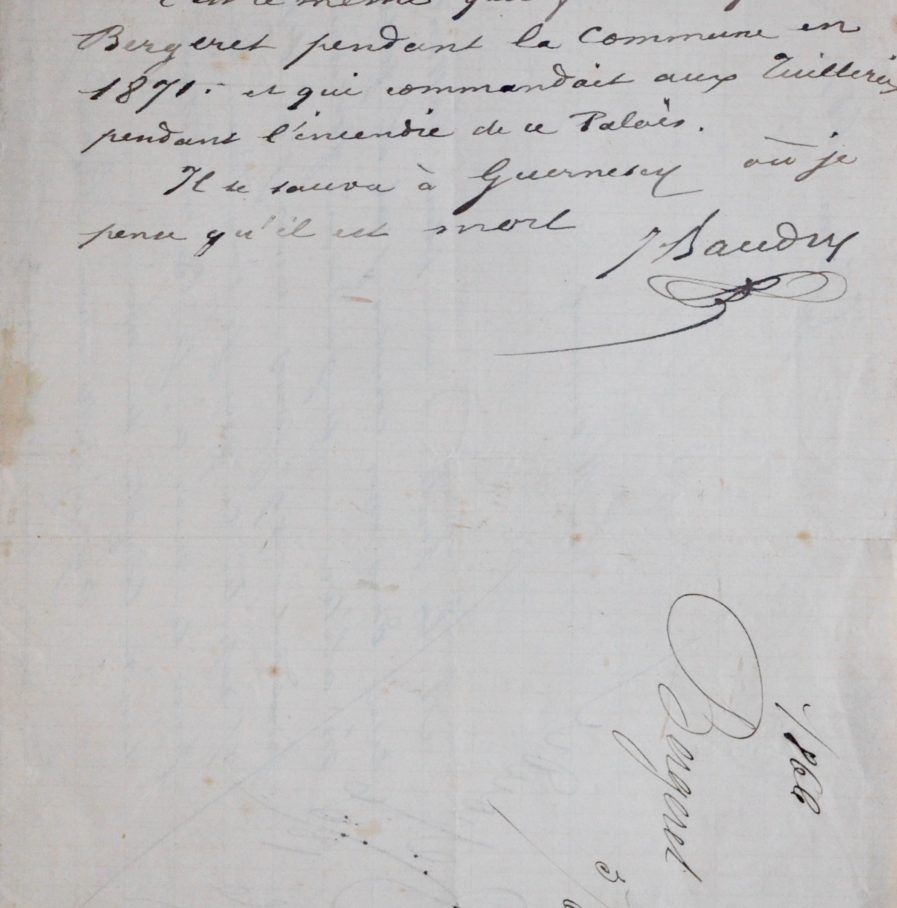 C'est le même qui
Bergeret pendant la Commune en
1871. et qui commandait aux Tuileries
pendant l'incendie de ce Palais.
Il se sauva à Guernesey où je
pense qu'il est mort
J. Baudry
1866
Bergeret
5